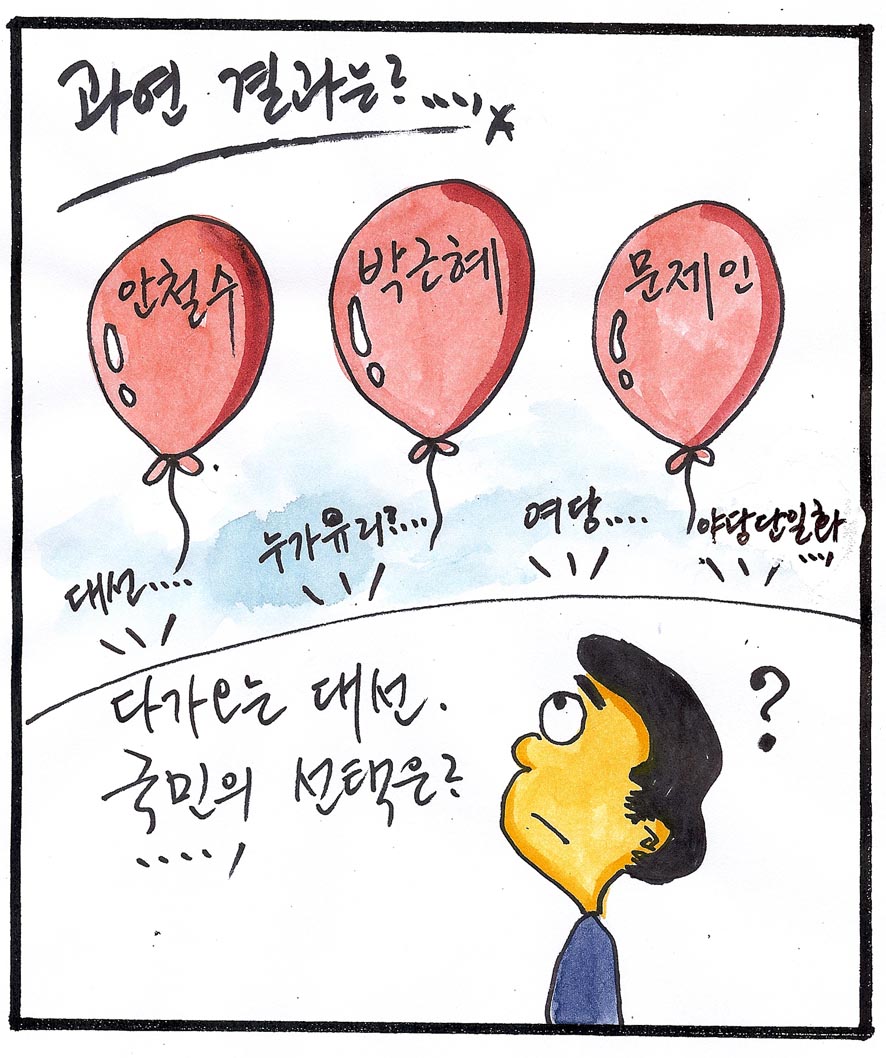 과연 결과는?....
안철수
박근혜
문제인
대선....
누가유리?...
여당....
야당단일화
....
다가오는 대선.
국민의 선택은?
....
?